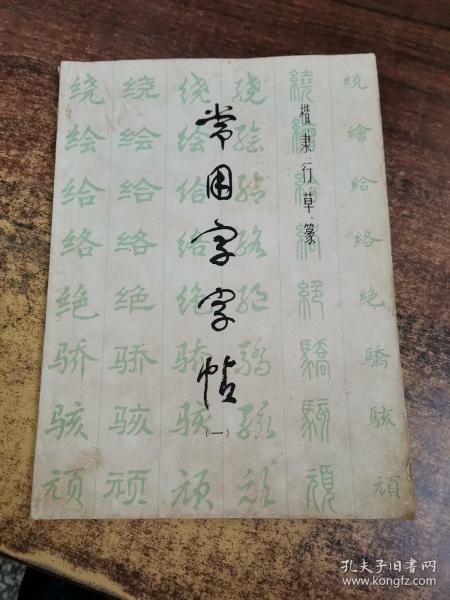 楷、隶、行、草、篆
常用字字帖
(一)
绕 绕 绕 绕 繞 繞
绘 绘 绘 绘 繪 繪
给 给 给 给 給 給
络 络 络 络 絡
绝 绝 绝 绝 絕 絕
骄 骄 骄 骄 驕 驕
骇 骇 骇 骇 駭 駭
顽 顽 顽 顽 頑 頑
孔夫子旧书网
www.kongfz.com